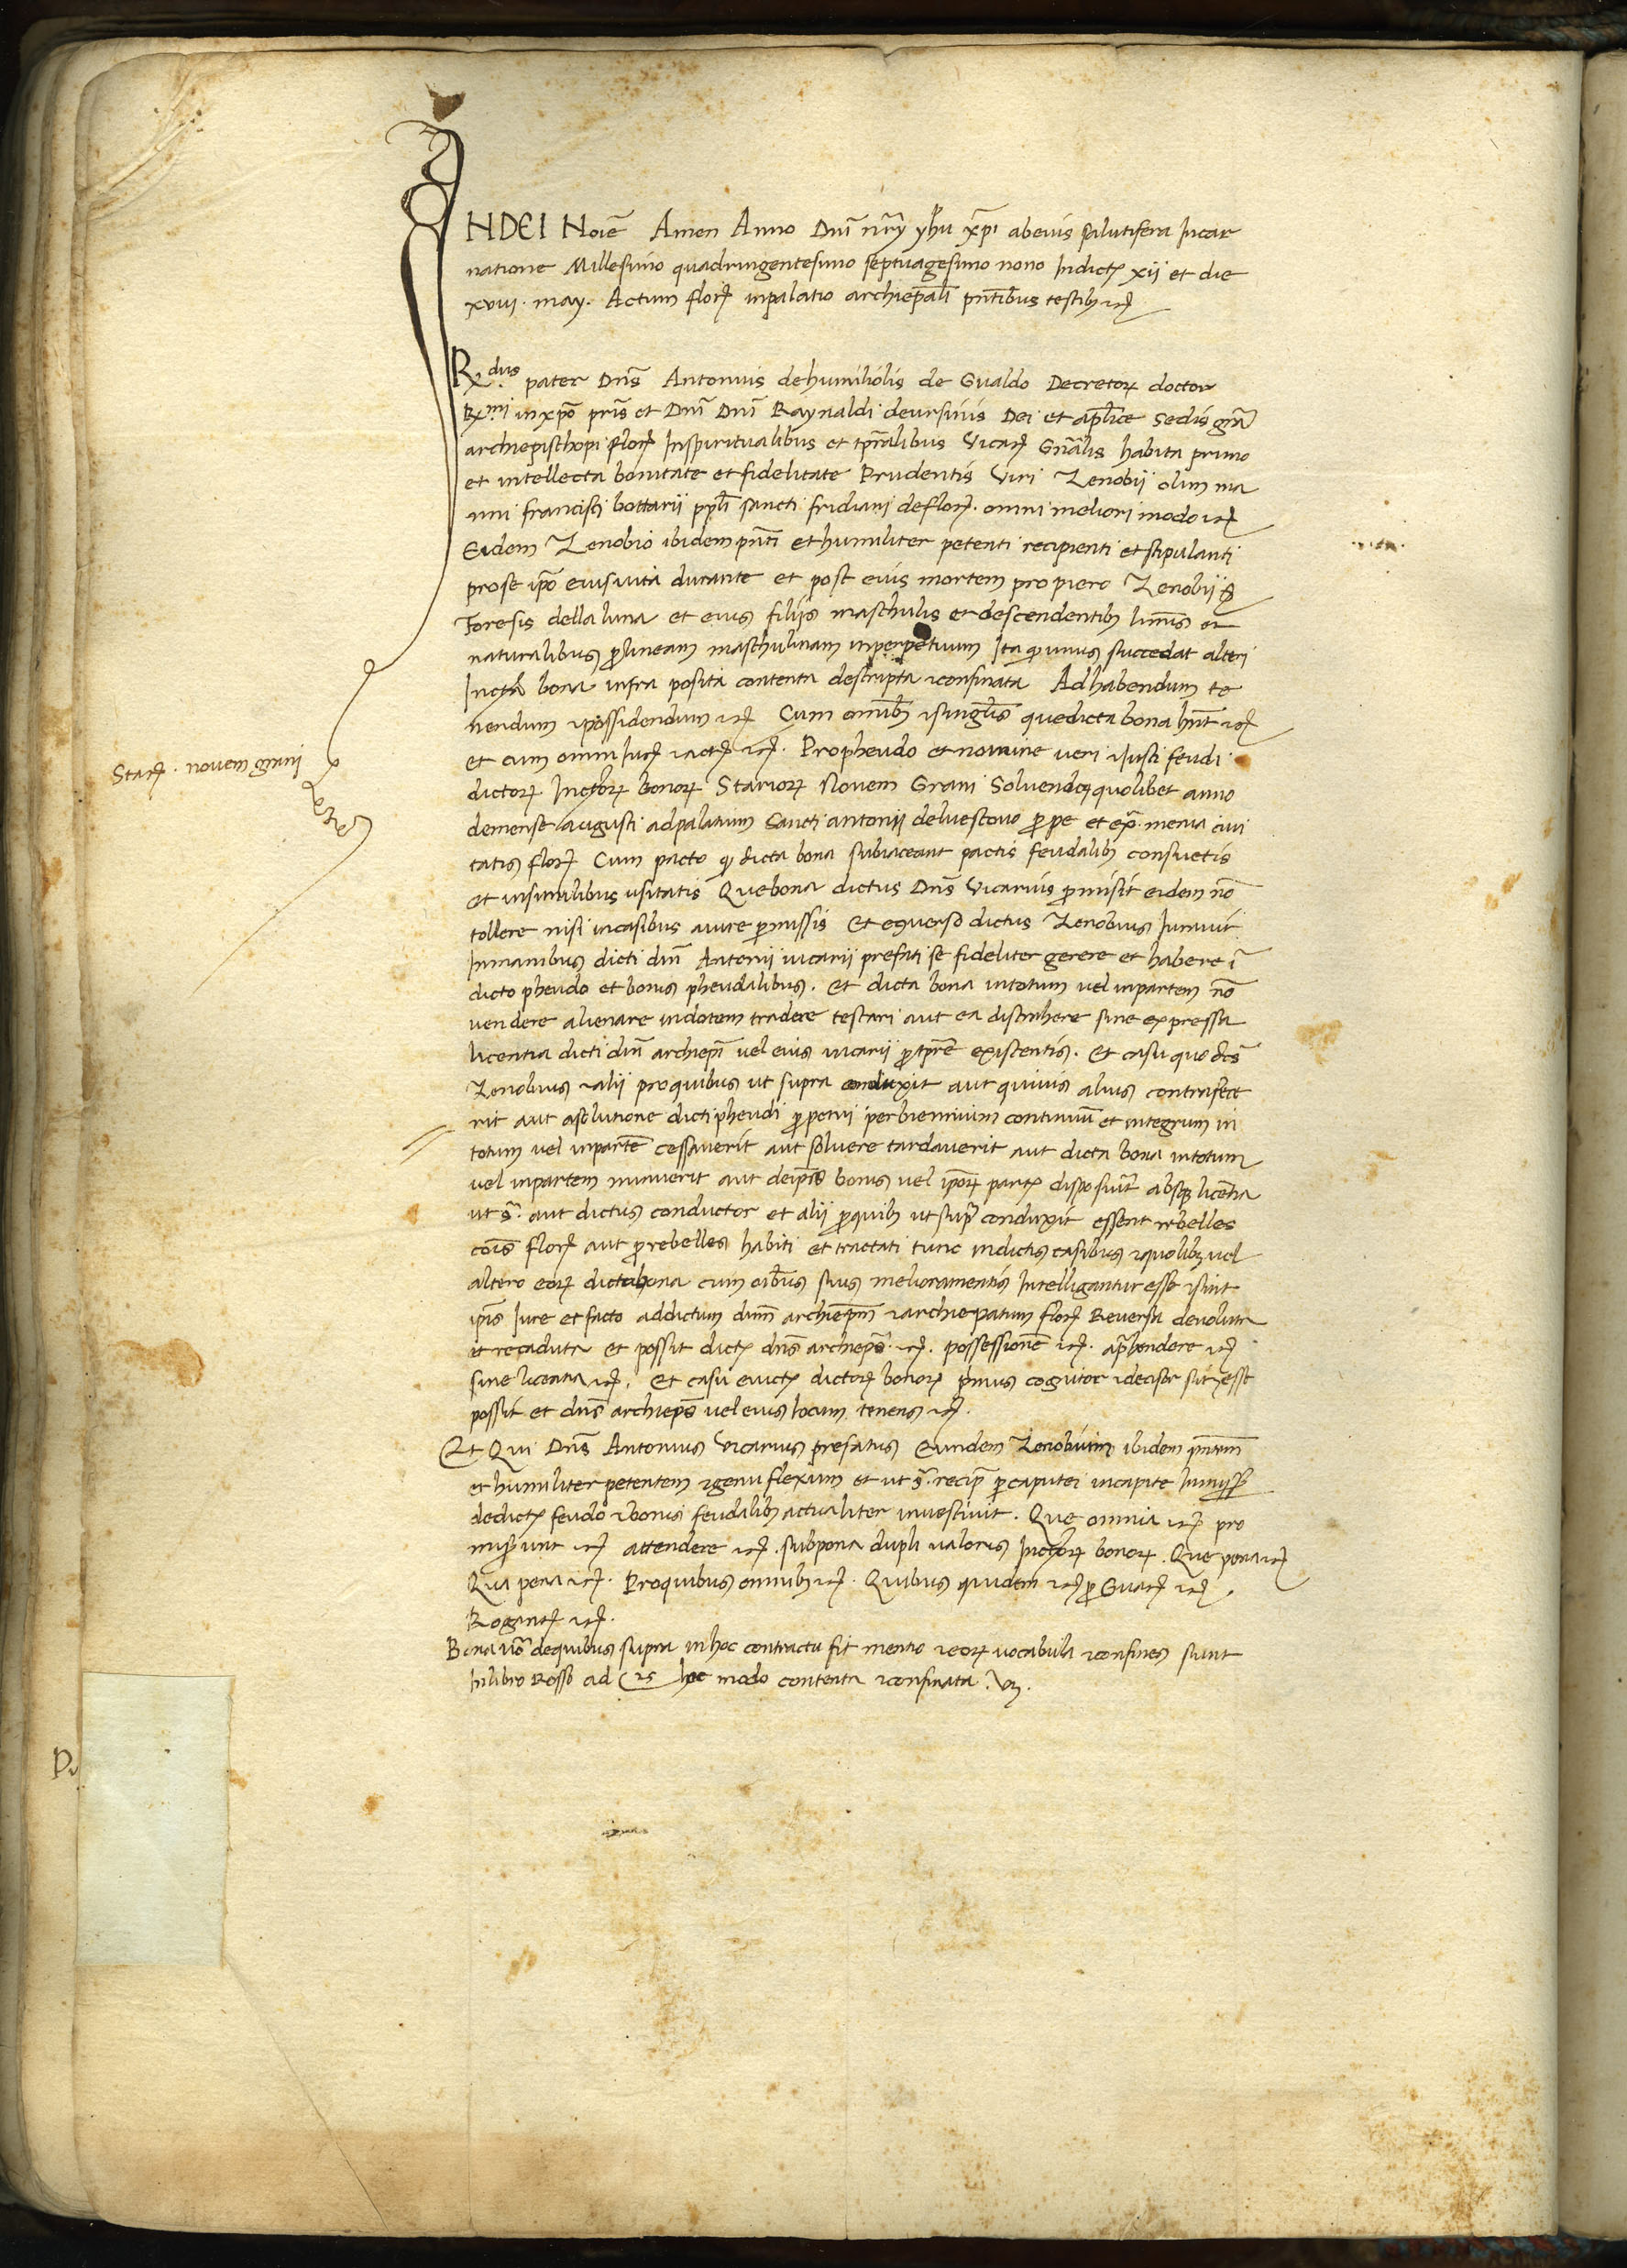 IN DEI Noīe Amen Anno Dnī nrȳ yhu xp̄i ab eius salutifera Incar
natione Millesimo quadringentesimo septuagesimo nono Indict xij et die
xviii. may. Actum flor inpalatio archiep̄ali pn̄tibus testib etc
R.dus pater Dn̄s Antonius dehumiliolis de Gualdo Decretor doctor
R.mi inxp̄o pris et Dnī Dnī Raynaldi deursinis Dei et ap̄lice sedis gr̄a
archiepischopi flor Inspiritualibus et tp̄ralibus Vicar Gn̄alis habita primo
et intellecta bonitate et fidelitate Prudentis Viri Zenobij olim ma
nni francisci bottarii pp̄li sancti fridiani deflor. omni meliori modo etc
Eidem Zenobio ibidem pn̄ti et humiliter petenti recipienti et stipulanti
prose ip̄o eiusuita durante et post eius mortem pro piero Zenobij S
Foresis della luna et eius filijs maschulis et descendentib lm̄is et
naturalibus p lineam maschulinam inperpetuum Ita q unus succedat alteri
bona infra posita contenta descripta et confinata Ad habendum te
nendum et possidendum etc Cum omīb et singulis quedicta bona hn̄t etc
et cum omni Iur et act etc. Propheudo et nomine veri et Iusti feudi
dictor bonor Starior Novem Grani Solvendor quolibet anno
demense augusti adpalatium Sancti antonij deluescouo ppe et ex̄. menia ciui
tatis flor Cum pacto q dicta bona subiaceant pactis feudalib consuetis
et insimilibus usitatis Quebona dictus Dn̄s Vicarius pmisit eidem nō
tollere nisi incasibus aiure pmissis Et eq̄uerso dictus Zenobius Iurauit
Inmanibus dicti dnī Antonij uicarij prefati se fideliter gerere et habere ī
dicto pheudo et bonis pheudalibus. Et dicta bona intotum uel inpartem nō
vendere alienare indotem tradere testari aut ea distrahere sine expressa
licentia dicti dnī archiep̄i uel eius uicarij p tp̄re existentis. Et casu quo dc̄s
Zenobius et alii proquibus ut supra conduxit aut quiuis alius contrafece
rit aut asolutione dicti pheudi ppetui per biennium continuū et integrum in
totum uel inpartē cessauerit aut soluere tardauerit aut dicta bona intotum
uel inpartem minuerit aut deip̄is bonis uel ip̄or part disposuīt absq licētia
ut s̄. aut dictus conductor et alij pquib ut sup̄ conduxit essent rebelles
cōis flor aut p rebelles habiti et tractati tunc indictis casibus et quolib uel
altero eor dicta bona cum oībus suis melioramentis Intelligantur esse et sint
ip̄is Iure et facto addictum dnm̄ archiep̄m et archiepatum flor Reversa deuoluta
et recaduta et possit dict dn̄s archiep̄s etc. possessionē etc. ap̄hendere etc
sine licentia etc. Et casu euict dictor bonor pmus cognitor et decisor sit et esse
possit et dn̄s archiep̄s uel eius locum tenens etc.
Et Qui Dn̄s Antonius Vicarius prefatus Eundem Zenobium ibidem pn̄tem
et humiliter petentem et genuflexum et ut s̄. recip̄ p caputei incapite
dedict feudo et bonis feudalib actualiter inuestiuit. Que omnia etc pro
miserunt etc attendere etc. subpena dupli valoris bonor. Que pena etc
Qua pena etc. Proquibus omnib etc. Quibus quidem etc p Guar etc.
Rogant etc.
Bona uō dequibus supra in hoc contractu fit mentio et eor uocabula et confines sunt
Inlibro Rosso ad c 25 hoc modo contenta et confinata. Vz.
Star. novem grani